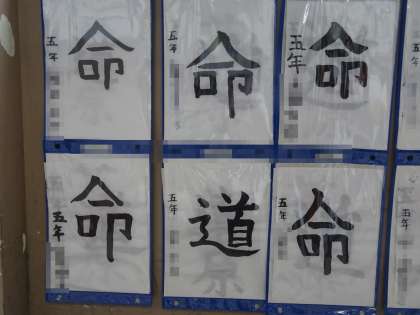 五年 命
五年 命
五年 命
五年 命
五年 道
五年 命